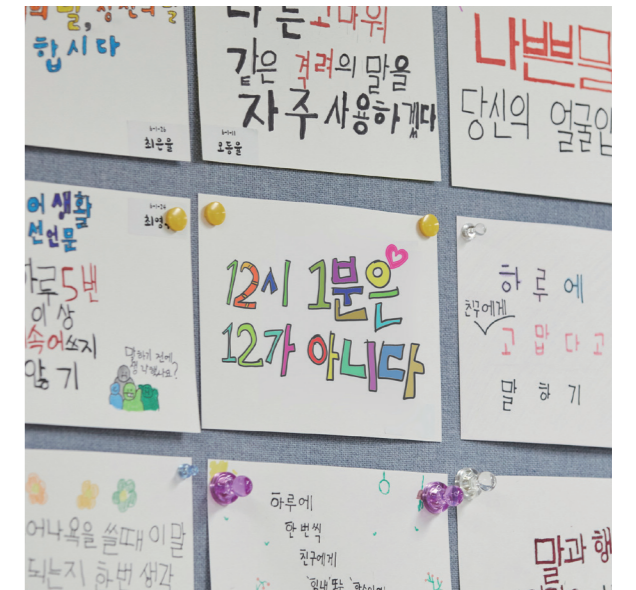 합시다
6-1-26
최은율
고마워
같은 격려의 말을
자주 사용하겠다
6-1-11
오동율
나쁜말
당신의 얼굴입
어 생활
선언문
하루 5번
이상
속어쓰지
않기
6-1-26
최영
말하기 전에
생각했나요?
12시 1분은
12가 아니다
하루에
친구에게
고맙다고
말하기
어나 욕을 쓸때 이 말
되는지 한번 생각
하루에
한번씩
친구에게
말과 행